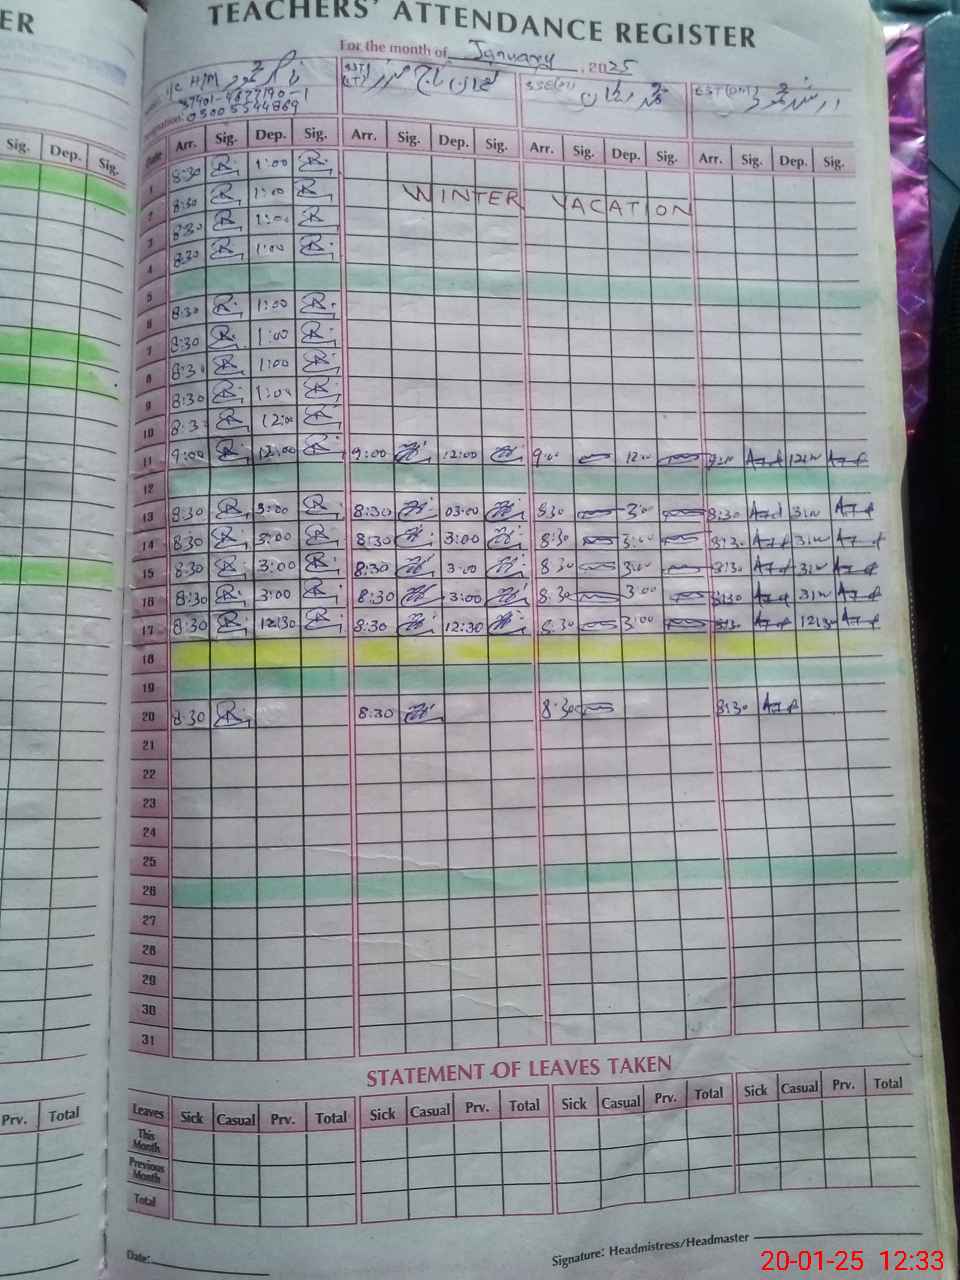 ER
TEACHERS' ATTENDANCE REGISTER
For the month of January, 2025
I/C H/M
37401-4877190-1
03005544869
SST
SSE
EST(DM)
Designation:
Sig. Dep. Sig.
Date Arr. Sig. Dep. Sig. Arr. Sig. Dep. Sig. Arr. Sig. Dep. Sig. Arr. Sig. Dep. Sig.
1 8:30 1:00
WINTER VACATION
2 8:30 1:00
3 8:30 1:00
4 8:30 1:00
5
6 8:30 1:00
7 8:30 1:00
8 8:30 1:00
9 8:30 1:00
10 8:30 12:00
11 9:00 12:00 9:00 12:00 9:00 12:00 9:00 12:00
12
13 8:30 3:00 8:30 03:00 8:30 3:00 8:30 3:00
14 8:30 3:00 8:30 3:00 8:30 3:00 8:30 3:00
15 8:30 3:00 8:30 3:00 8:30 3:00 8:30 3:00
16 8:30 3:00 8:30 3:00 8:30 3:00 8:30 3:00
17 8:30 12:30 8:30 12:30 8:30 3:00 8:30 12:30
18
19
20 8:30 8:30 8:30 8:30
21
22
23
24
25
26
27
28
29
30
31
STATEMENT OF LEAVES TAKEN
Prv. Total
Leaves Sick Casual Prv. Total Sick Casual Prv. Total Sick Casual Prv. Total Sick Casual Prv. Total
This Month
Previous Month
Total
Date:
Signature: Headmistress/Headmaster
20-01-25 12:33